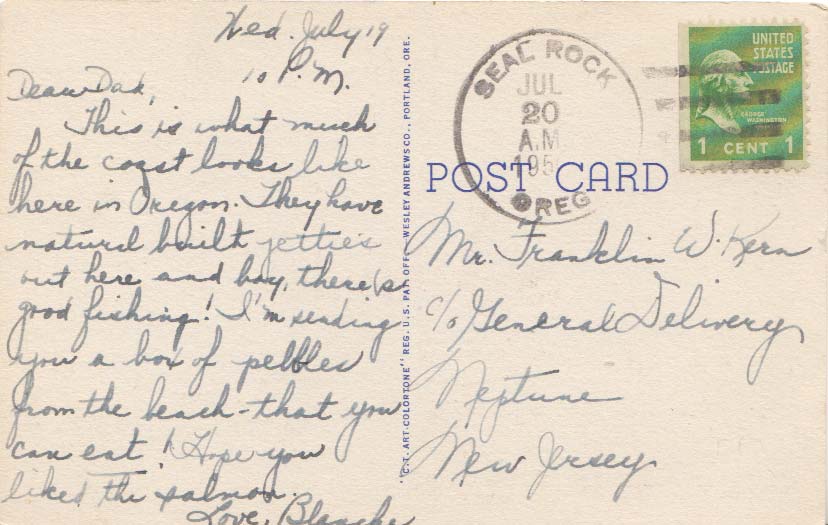 Wed. July 19
10 P.M.
Dear Dad,
This is what much
of the coast looks like
here in Oregon. They have
natural built jetties
out here and boy, there is
good fishing! I'm sending
you a box of pebbles
from the beach - that you
can eat! Hope you
liked the salmon.
Love, Blanche
"C.T. ART-COLORTONE" REG. U.S. PAT. OFF. WESLEY ANDREWS CO., PORTLAND, ORE.
SEAL ROCK
JUL
20
A.M.
195
OREG
UNITED
STATES
POSTAGE
GEORGE
WASHINGTON
1 CENT 1
POST CARD
Mr. Franklin W. Kern
c/o General Delivery
Neptune
New Jersey